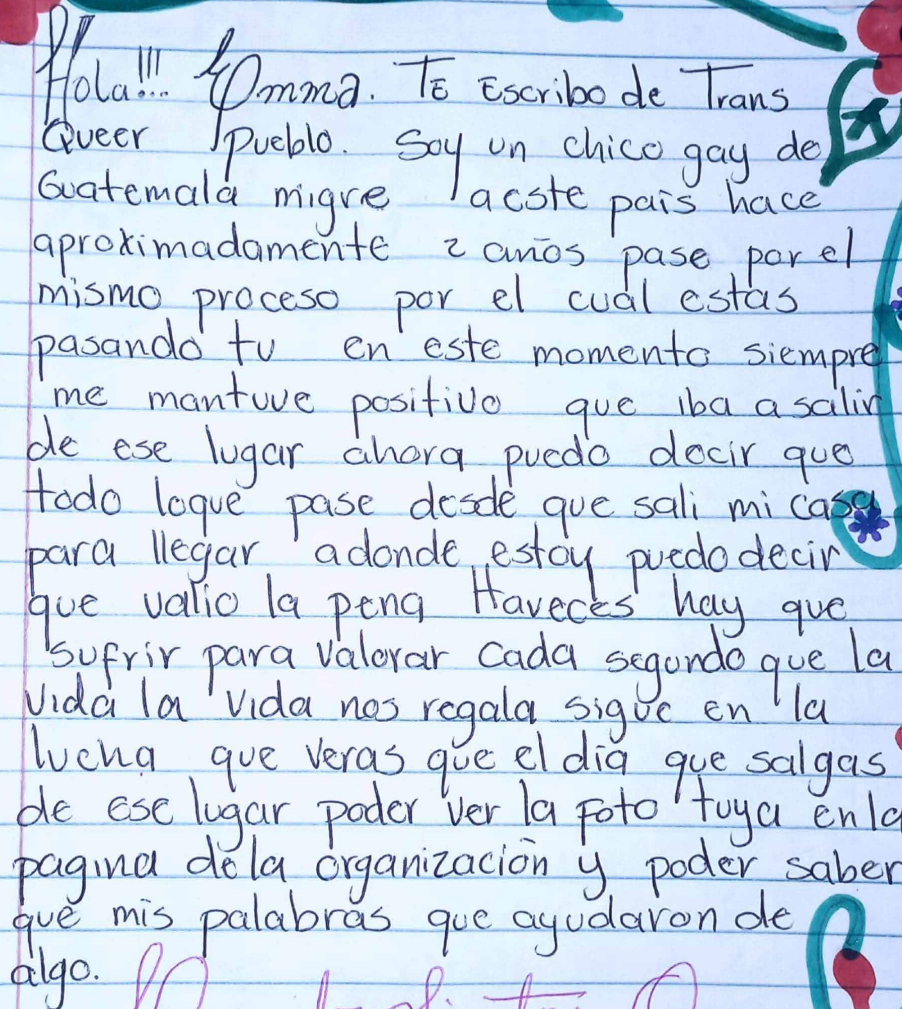 Hola!!! Emma. Te Escribo de Trans
Queer Pueblo. Soy un chico gay de
Guatemala migre a este pais hace
aproximadamente 2 años pase por el
mismo proceso por el cual estas
pasando tu en este momento siempre
me mantuve positivo que iba a salir
de ese lugar ahora puedo decir que
todo loque pase desde que sali mi casa
para llegar adonde estoy puedo decir
que valio la pena Haveces hay que
sufrir para valorar cada segundo que la
vida la vida nos regala sigue en la
lucha que veras que el dia que salgas
de ese lugar poder ver la foto tuya en la
pagina dela organización y poder saber
que mis palabras que ayudaron de
algo.